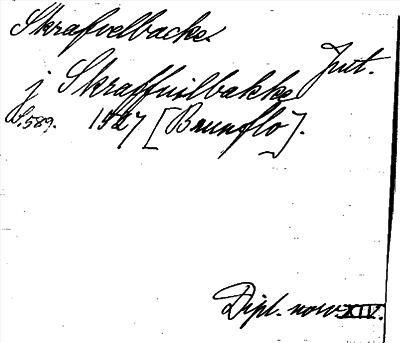 Skrafvelbacke.
Jmt.
j Skraffuilbakke
S. 589. 1527 [Brunflo].
Dipl. norv. XIV.